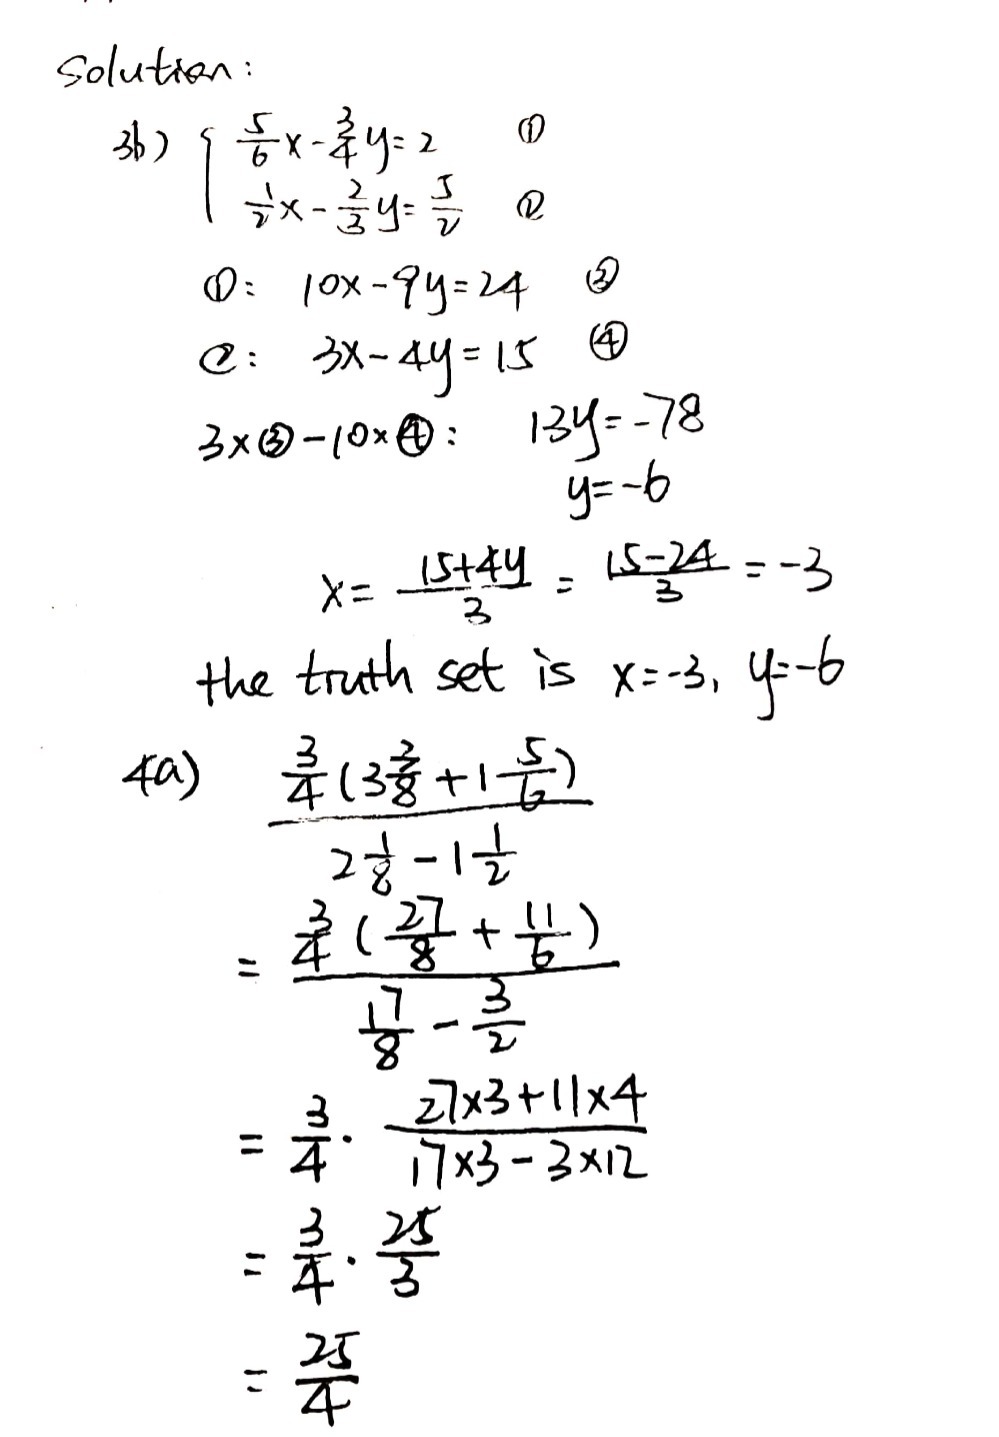 Solution:
3b) { 5/6 x - 3/4 y = 2 ①
1/2 x - 2/3 y = 5/2 ②
①: 10x - 9y = 24 ③
②: 3x - 4y = 15 ④
3×③ - 10×④: 13y = -78
y = -6
x = (15+4y)/3 = (15-24)/3 = -3
the truth set is x=-3, y=-6
4a) 3/4 (3 3/8 + 1 5/6) / (2 1/8 - 1 1/2)
= 3/4 (27/8 + 11/6) / (17/8 - 3/2)
= 3/4 · (27×3+11×4)/(17×3-3×12)
= 3/4 · 25/3
= 25/4